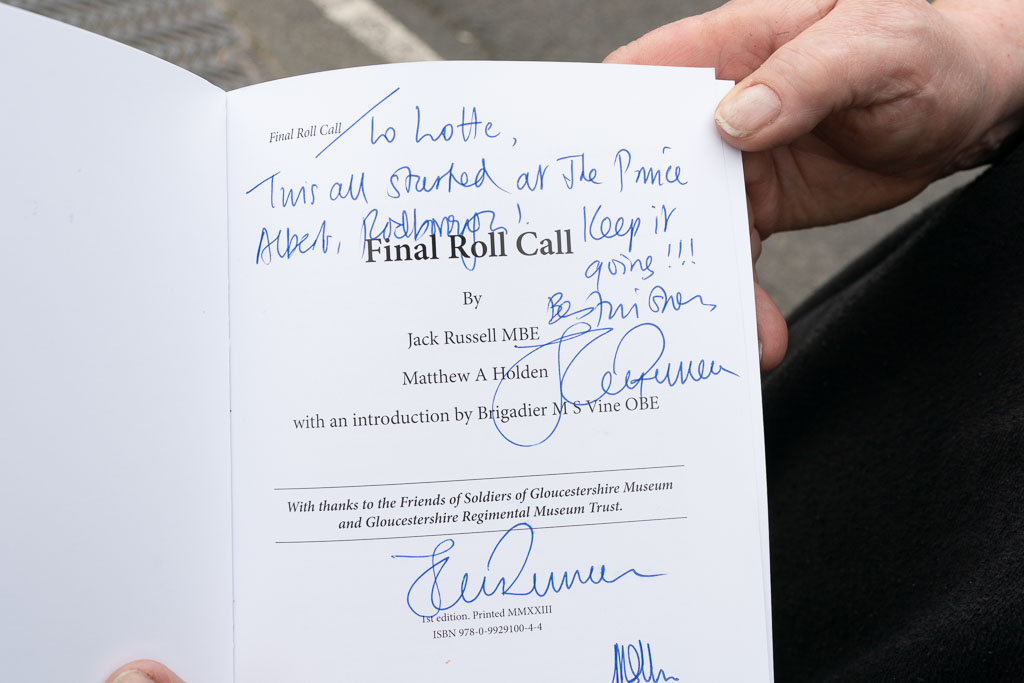 Final Roll Call
To Lotte,
This all started at The Prince
Albert, Rodborough! Keep it
going!!!
Final Roll Call
Best wishes
By
Jack Russell MBE
Matthew A Holden
with an introduction by Brigadier M S Vine OBE
With thanks to the Friends of Soldiers of Gloucestershire Museum
and Gloucestershire Regimental Museum Trust.
1st edition. Printed MMXXIII
ISBN 978-0-9929100-4-4